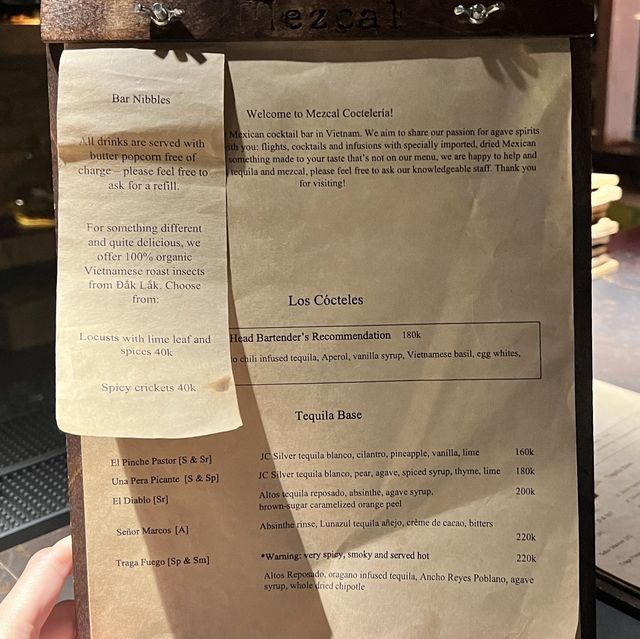 Mezcal
Bar Nibbles
All drinks are served with
butter popcorn free of
charge – please feel free to
ask for a refill.
For something different
and quite delicious, we
offer 100% organic
Vietnamese roast insects
from Đắk Lắk. Choose
from:
Locusts with lime leaf and
spices 40k
Spicy crickets 40k
Welcome to Mezcal Coctelería!
Mexican cocktail bar in Vietnam. We aim to share our passion for agave spirits
with you: flights, cocktails and infusions with specially imported, dried Mexican
something made to your taste that's not on our menu, we are happy to help and
tequila and mezcal, please feel free to ask our knowledgeable staff. Thank you
for visiting!
Los Cócteles
Head Bartender's Recommendation 180k
chili infused tequila, Aperol, vanilla syrup, Vietnamese basil, egg whites,
Tequila Base
El Pinche Pastor [S & Sr] JC Silver tequila blanco, cilantro, pineapple, vanilla, lime 160k
Una Pera Picante [S & Sp] JC Silver tequila blanco, pear, agave, spiced syrup, thyme, lime 180k
El Diablo [Sr] Altos tequila reposado, absinthe, agave syrup, 200k
brown-sugar caramelized orange peel
Señor Marcos [A] Absinthe rinse, Lunazul tequila añejo, crème de cacao, bitters
220k
Traga Fuego [Sp & Sm] *Warning: very spicy, smoky and served hot 220k
Altos Reposado, oragano infused tequila, Ancho Reyes Poblano, agave
syrup, whole dried chipotle